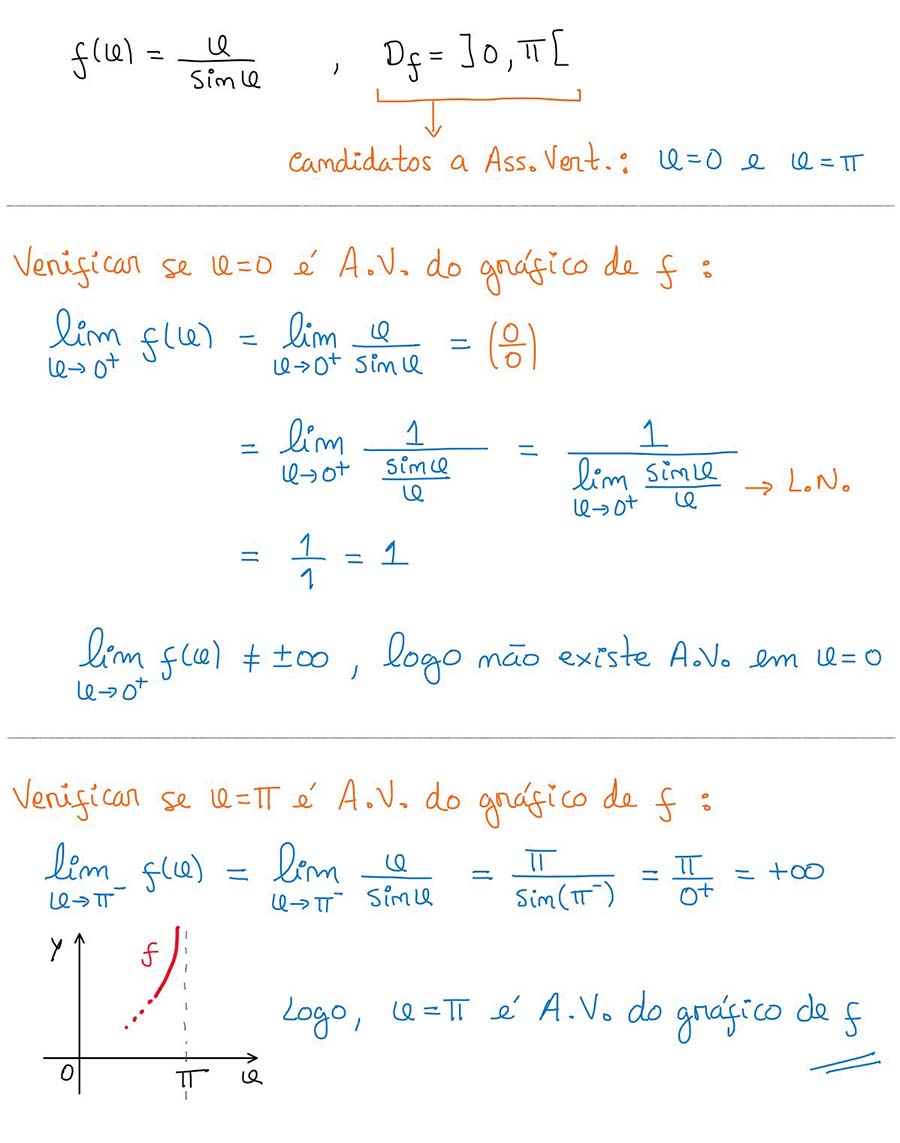 f(x) = x/sin x , D_f = ]0, π[
Candidatos a Ass. Vert.: x=0 e x=π
Verificar se x=0 é A.V. do gráfico de f :
lim x→0⁺ f(x) = lim x→0⁺ x/sin x = (0/0)
= lim x→0⁺ 1/(sin x/x) = 1/(lim x→0⁺ sin x/x) → L.N.
= 1/1 = 1
lim x→0⁺ f(x) ≠ ±∞ , logo não existe A.V. em x=0
Verificar se x=π é A.V. do gráfico de f :
lim x→π⁻ f(x) = lim x→π⁻ x/sin x = π/sin(π⁻) = π/0⁺ = +∞
y f
Logo, x=π é A.V. do gráfico de f
0 π x